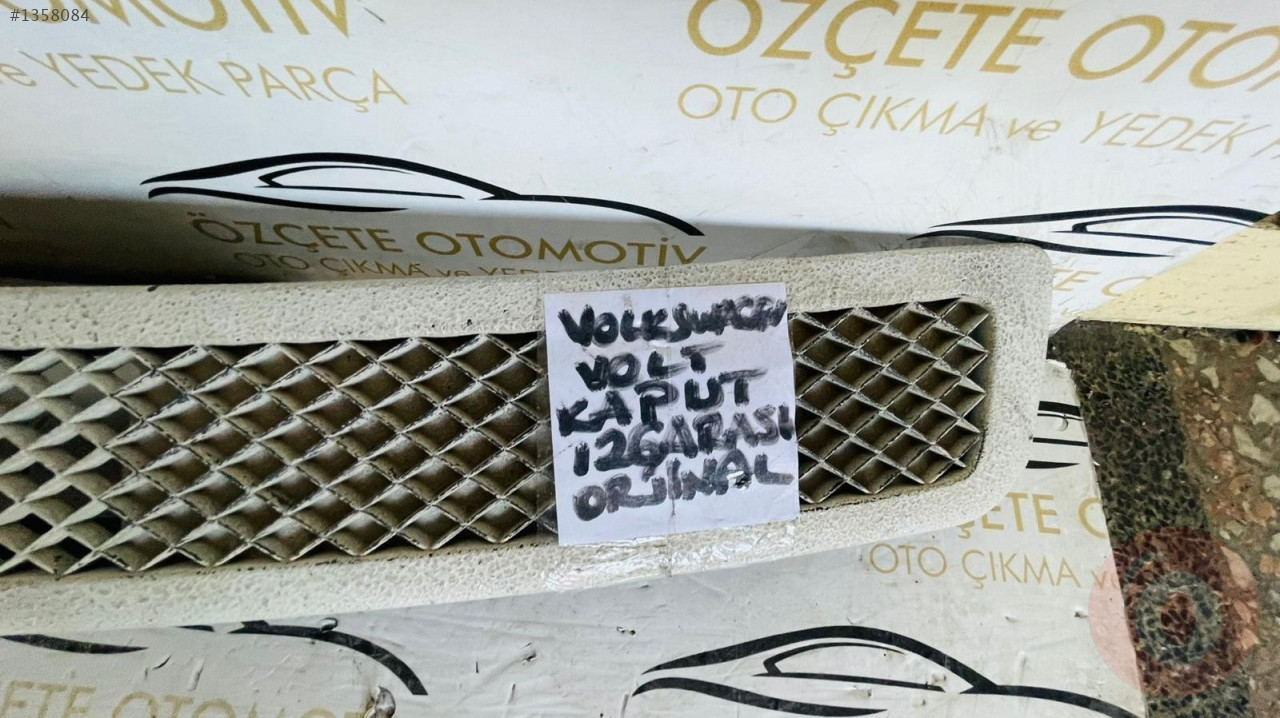 #1358084
OTOMOTİV
ve YEDEK PARÇA
ÖZÇETE OTO
OTO ÇIKMA ve YEDEK
ÖZÇETE OTOMOTİV
OTO ÇIKMA ve YEDEK
VOLKSWAGEN
VOLT
KAPUT
IZGARASI
ORJİNAL
ÇETE
OTO ÇIKMA ve
ETE OTOMOTİV